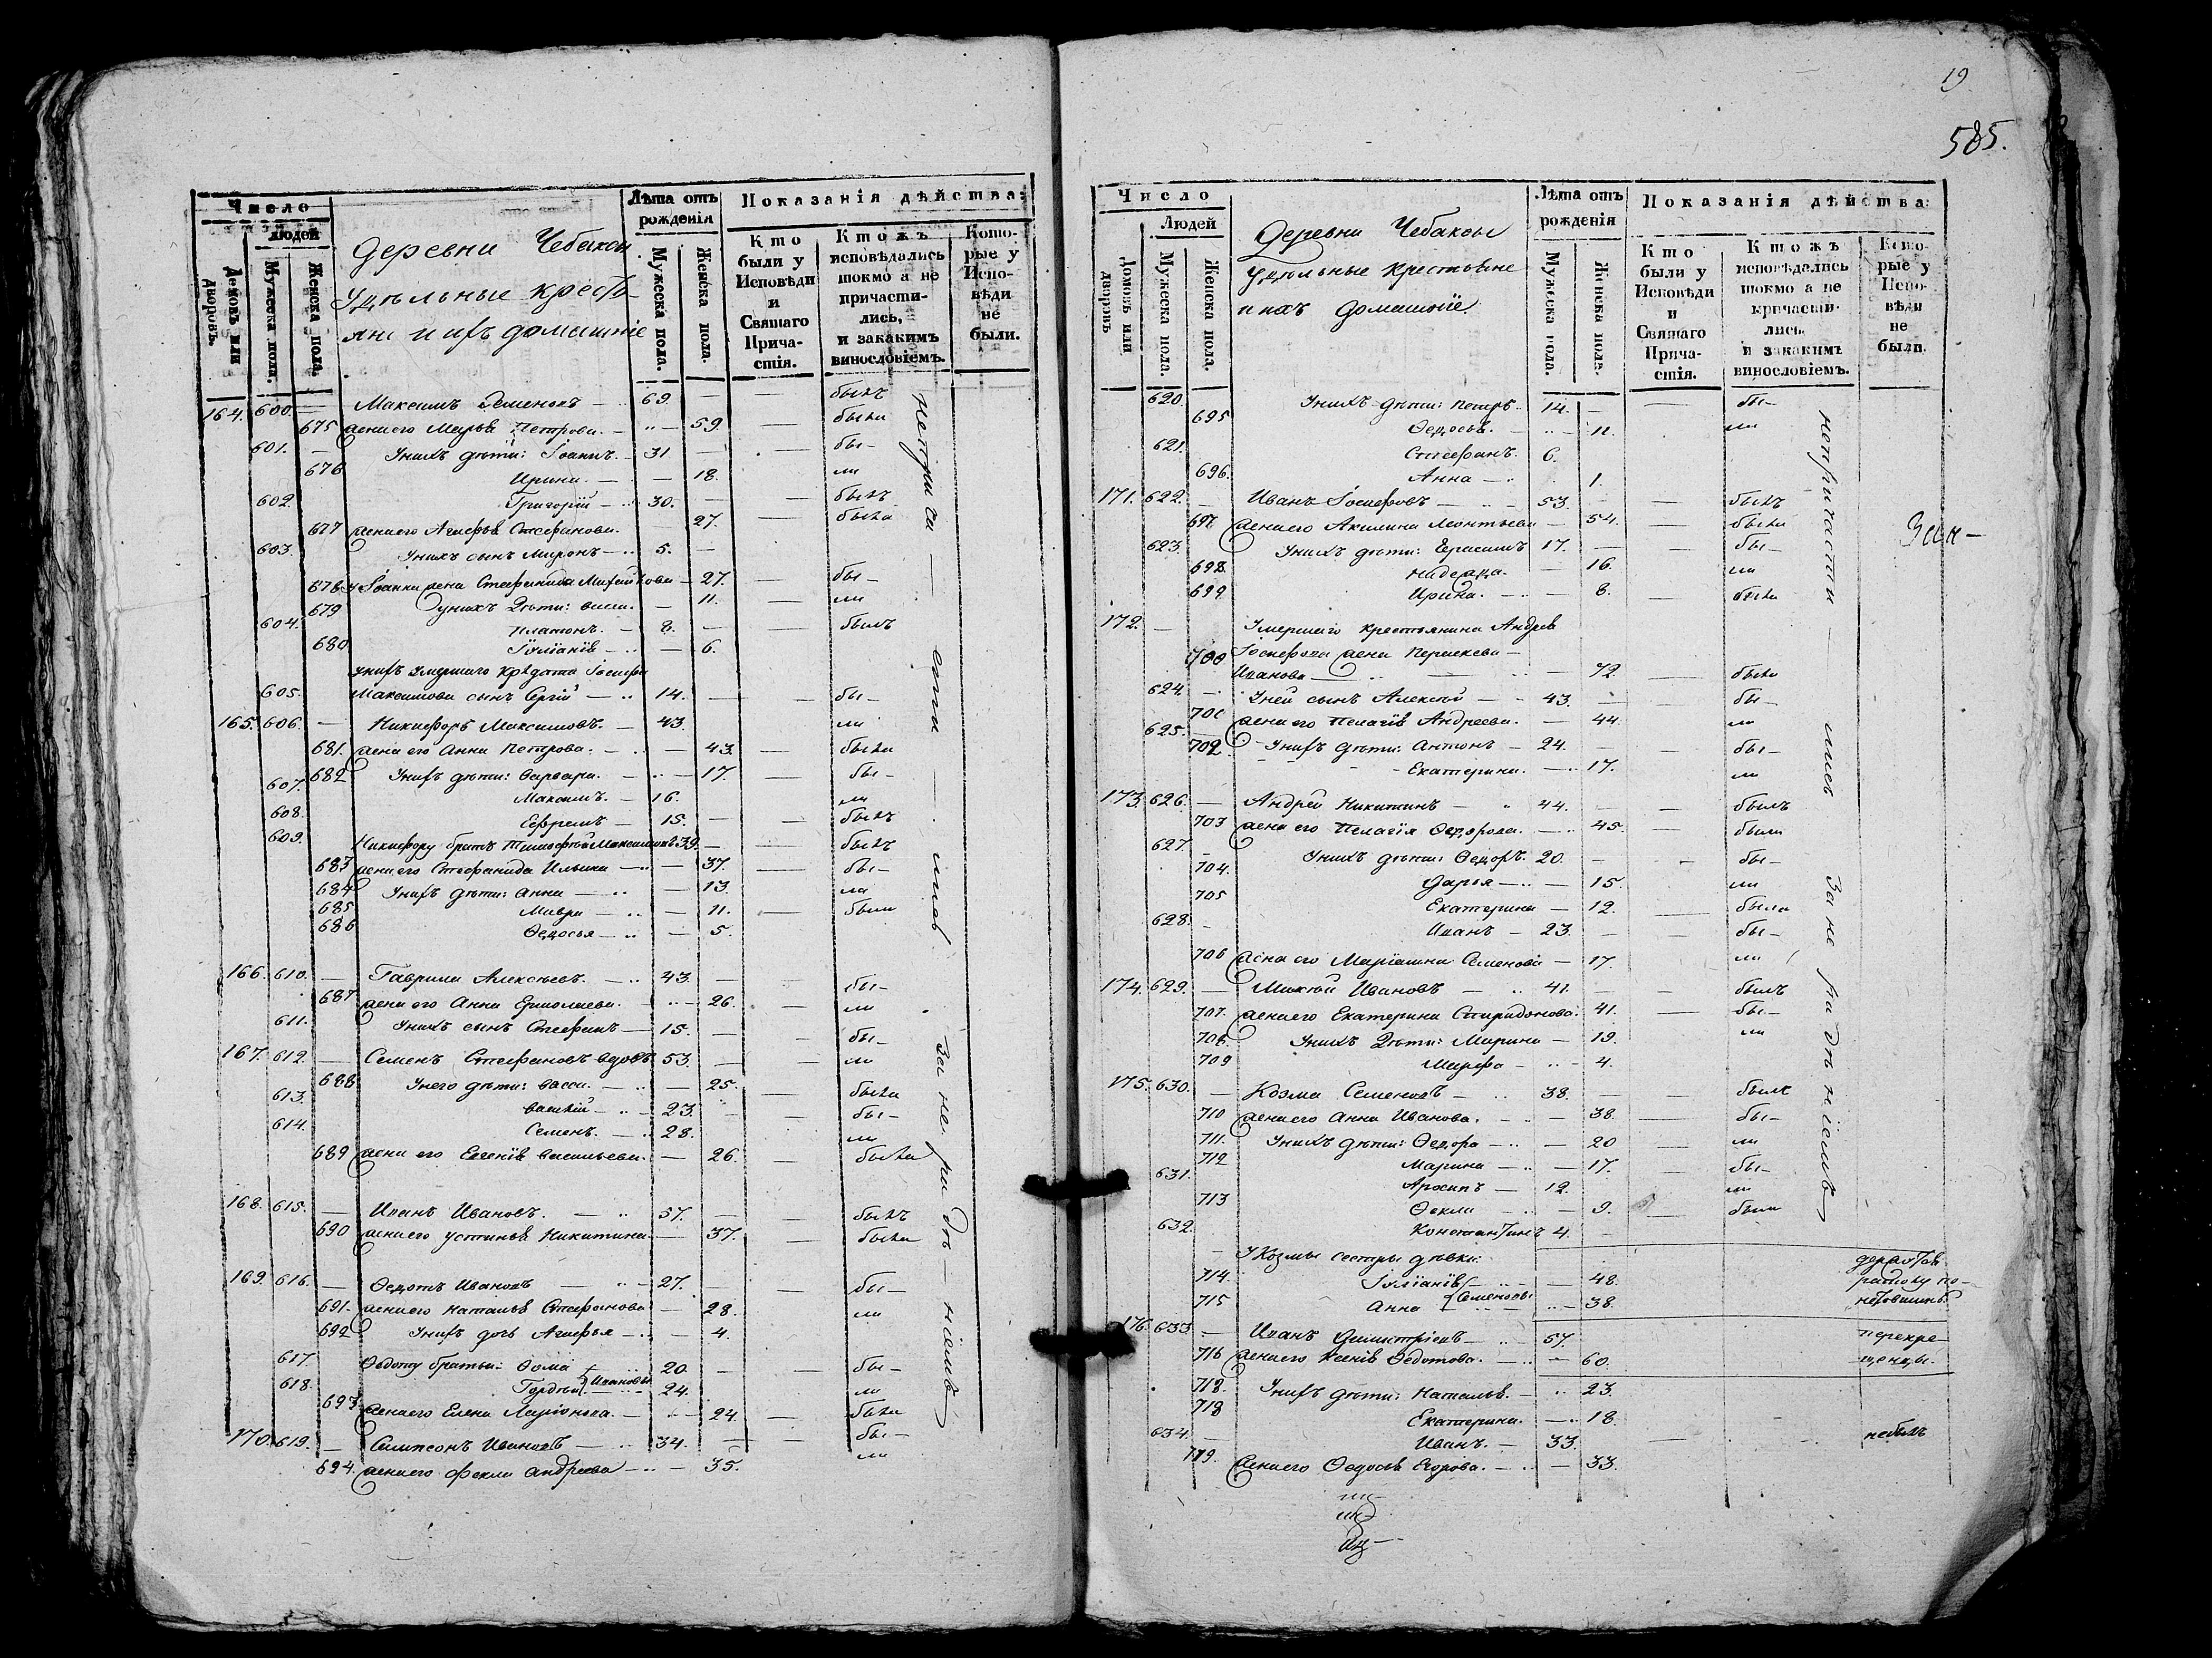 Число
Людей
Домовъ или дворовъ.
Мужеска пола.
Женска пола.
Деревни Чебаксы
Удѣльные кресть-
яне и ихъ домашніе
Лѣта отъ рожденія
Мужеска пола.
Женска пола.
Показанія дѣйства:
Кто были у Исповѣди и Святаго Прича-стія.
Ктожъ исповѣдались токмо а не причасти-лись, и закакимъ винословіемъ.
Кото-рые у Испо-вѣди не были.
164. 600. — Максимъ Семеновъ — 69. — былъ
675 жена его Марья Петрова. — 59. — была
601. — У нихъ дѣти: Іоаннъ. — 31 — бы-
676 Ирина. — 18. ли
602. Григорій — 30. — былъ
677 жена его Агафья Стефанова. 27. — была
603. У нихъ сынъ Миронъ — 5. —
678 у Іоанна жена Стефанида Михайлова — 27. — бы-
679 у нихъ дѣти: Васса. — 11. — ли
604. Платонъ. — 8. — былъ
680 Іуліанія — 6.
у нихъ умершаго солдата Іосифа
605. Максимова сынъ Сергій — 14. — бы-
165. 606. — Никифоръ Максимовъ. — 43. ли
681. жена его Анна Петрова. — 43. — была
682 У нихъ дѣти: Варвара. — 17. — бы-
607. Максимъ. — 16. ли
608. Ефремъ — 15. — былъ
609. Никифору братъ Тимофей Максимовъ 39. — былъ
683 жена его Стефанида Ильина — 37. — бы-
684 У нихъ дѣти: Анна — 13. ли
685 Мавра — 11. — были
686 Ѳедосья — 5.
166. 610. — Гаврила Алексѣевъ. — 43. — бы-
687 жена его Анна Ермолаева. — 26. — ли
611. У нихъ сынъ Стефанъ — 15. — бы-
167. 612. — Семенъ Стефановъ вдовъ 53. — ли
688 У него дѣти: Васса. — 25. — была
613. Василій — 23. — бы-
614. Семенъ. — 28. ли
689 жена его Евгенія Васильева. — 26. — была
168. 615. — Иванъ Ивановъ. — 57. — былъ
690 жена его Устинья Никитина — 37. — была
169. 616. — Ѳедотъ Ивановъ — 27. — бы-
691. жена его Наталья Стефанова — 28. ли
692 У нихъ дочь Агафья — 4.
617. Ѳедоту братья: Ѳома 20. — бы-
618. Гордѣй Ивановы 24. ли
693. жена его Елена Ларіонова. — 24. — была
170. 619. — Сампсонъ Ивановъ — 34. — бы-
694. жена его Фекла Андреева — 35. ли
19
585.
Число
Людей
Домовъ или дворовъ
Мужеска пола.
Женска пола.
Деревни Чебаксы
Удѣльные крестьяне
и ихъ домашніе
Лѣта отъ рожденія
Мужеска пола.
Женска пола.
Показанія дѣйства:
Кто были у Исповѣди и Святаго Прича-стія.
Ктожъ исповѣдались токмо а не причасти-лись, и закакимъ винословіемъ.
Кото-рые у Испо-вѣди не были.
620. У нихъ дѣти: Петръ. 14. — бы-
695 Ѳедосья. — 11. ли
621. Стефанъ. 6.
696. Анна — 1.
171. 622. — Иванъ Іосифовъ — 53. — былъ
697. жена его Акилина Леонтьева — 54. — была
623. У нихъ дѣти: Герасимъ 17. — бы-
698. Надежда. — 16. ли
699 Ирина. — 8. — была
172. — Умершаго крестьянина Андрея
700 Іосифова жена Параскева —
Иванова — 72. — была
624. — У ней сынъ Алексѣй — 43. — бы-
701 жена его Пелагія Андреева. — 44. ли
625. У нихъ дѣти: Антонъ — 24. — бы-
702. Екатерина. — 17. ли
173. 626. — Андрей Никитинъ — 44. — былъ
703 жена его Пелагія Ѳедорова. — 45. была
627. У нихъ дѣти: Ѳедоръ. 20. — бы-
704. Дарья — 15. ли
705 Екатерина — 12. — была
628. Иванъ — 23. — бы-
706 жена его Маріамна Семенова — 17. ли
174. 629. — Михѣй Ивановъ — 41. — былъ
707. жена его Екатерина Спиридонова. 41. — бы-
708. У нихъ дѣти: Марина — 19. ли
709 Марфа — 4.
175. 630. — Козма Семеновъ — 38. — былъ
710 жена его Анна Иванова. — 38. бы-
711. У нихъ дѣти: Ѳедора — 20 ли
712 Марина — 17. бы-
631. Архипъ — 12. ли
713 Ѳекла — 9. — были
632. Константинъ 4.
У Козмы сестры дѣвки:
714. Іуліанія — 48.
715 Анна Семеновы 38.
176. 633. — Иванъ Димитріевъ — 57. перекре-
716 жена его Ксенія Ѳедотова. — 60. щенцы.
718. У нихъ дѣти: Наталья. — 23.
718 Екатерина. — 18.
634. — Иванъ. — 33. небылъ
719. жена его Ѳедосья Егорова. — 33.